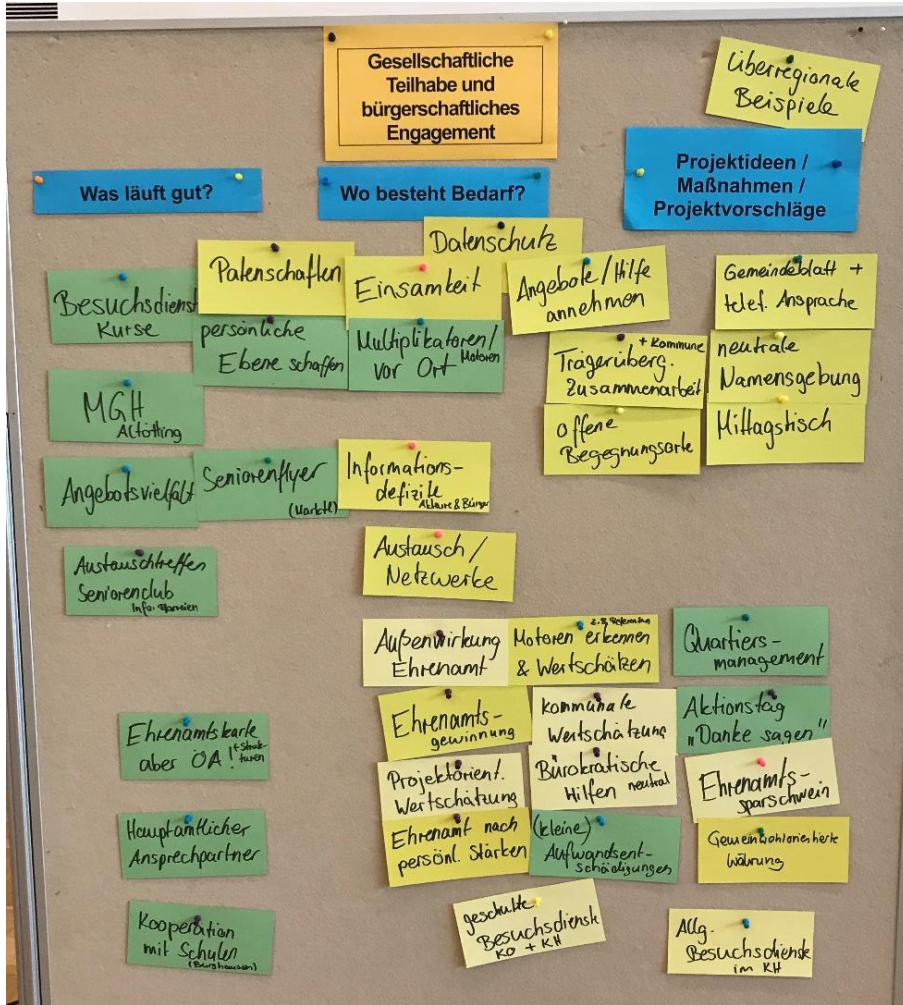 Gesellschaftliche
Teilhabe und
bürgerschaftliches
Engagement
Überregionale
Beispiele
Was läuft gut?
Wo besteht Bedarf?
Projektideen /
Maßnahmen /
Projektvorschläge
Besuchsdienst
Kurse
Patenschaften
persönliche
Ebene schaffen
MGH
Altötting
Angebotsvielfalt
Seniorenflyer
(Marktl)
Austauschtreffen
Seniorenclub
Info: Pfarreien
Ehrenamtskarte
aber ÖA! + Struk-
turen
Hauptamtlicher
Ansprechpartner
Kooperation
mit Schulen
(Burghausen)
Datenschutz
Einsamkeit
Multiplikatoren/
vor Ort Motoren
Angebote/Hilfe
annehmen
+ Kommune
Trägerüberg.
Zusammenarbeit
offene
Begegnungsorte
Informations-
defizite
Akteure & Bürger
Austausch/
Netzwerke
Außenwirkung
Ehrenamt
z.B.
Motoren erkennen
& Wertschätzen
Ehrenamts-
gewinnung
kommunale
Wertschätzung
Projektorient.
Wertschätzung
Bürokratische
Hilfen neutral
Ehrenamt nach
persönl. Stärken
(kleine)
Aufwandsent-
schädigungen
geschulte
Besuchsdienste
KO + KH
Gemeindeblatt +
telef. Ansprache
neutrale
Namensgebung
Mittagstisch
Quartiers-
management
Aktionstag
„Danke sagen"
Ehrenamts-
sparschwein
Gemeinwohlorientierte
Währung
Allg.
Besuchsdienste
im KH